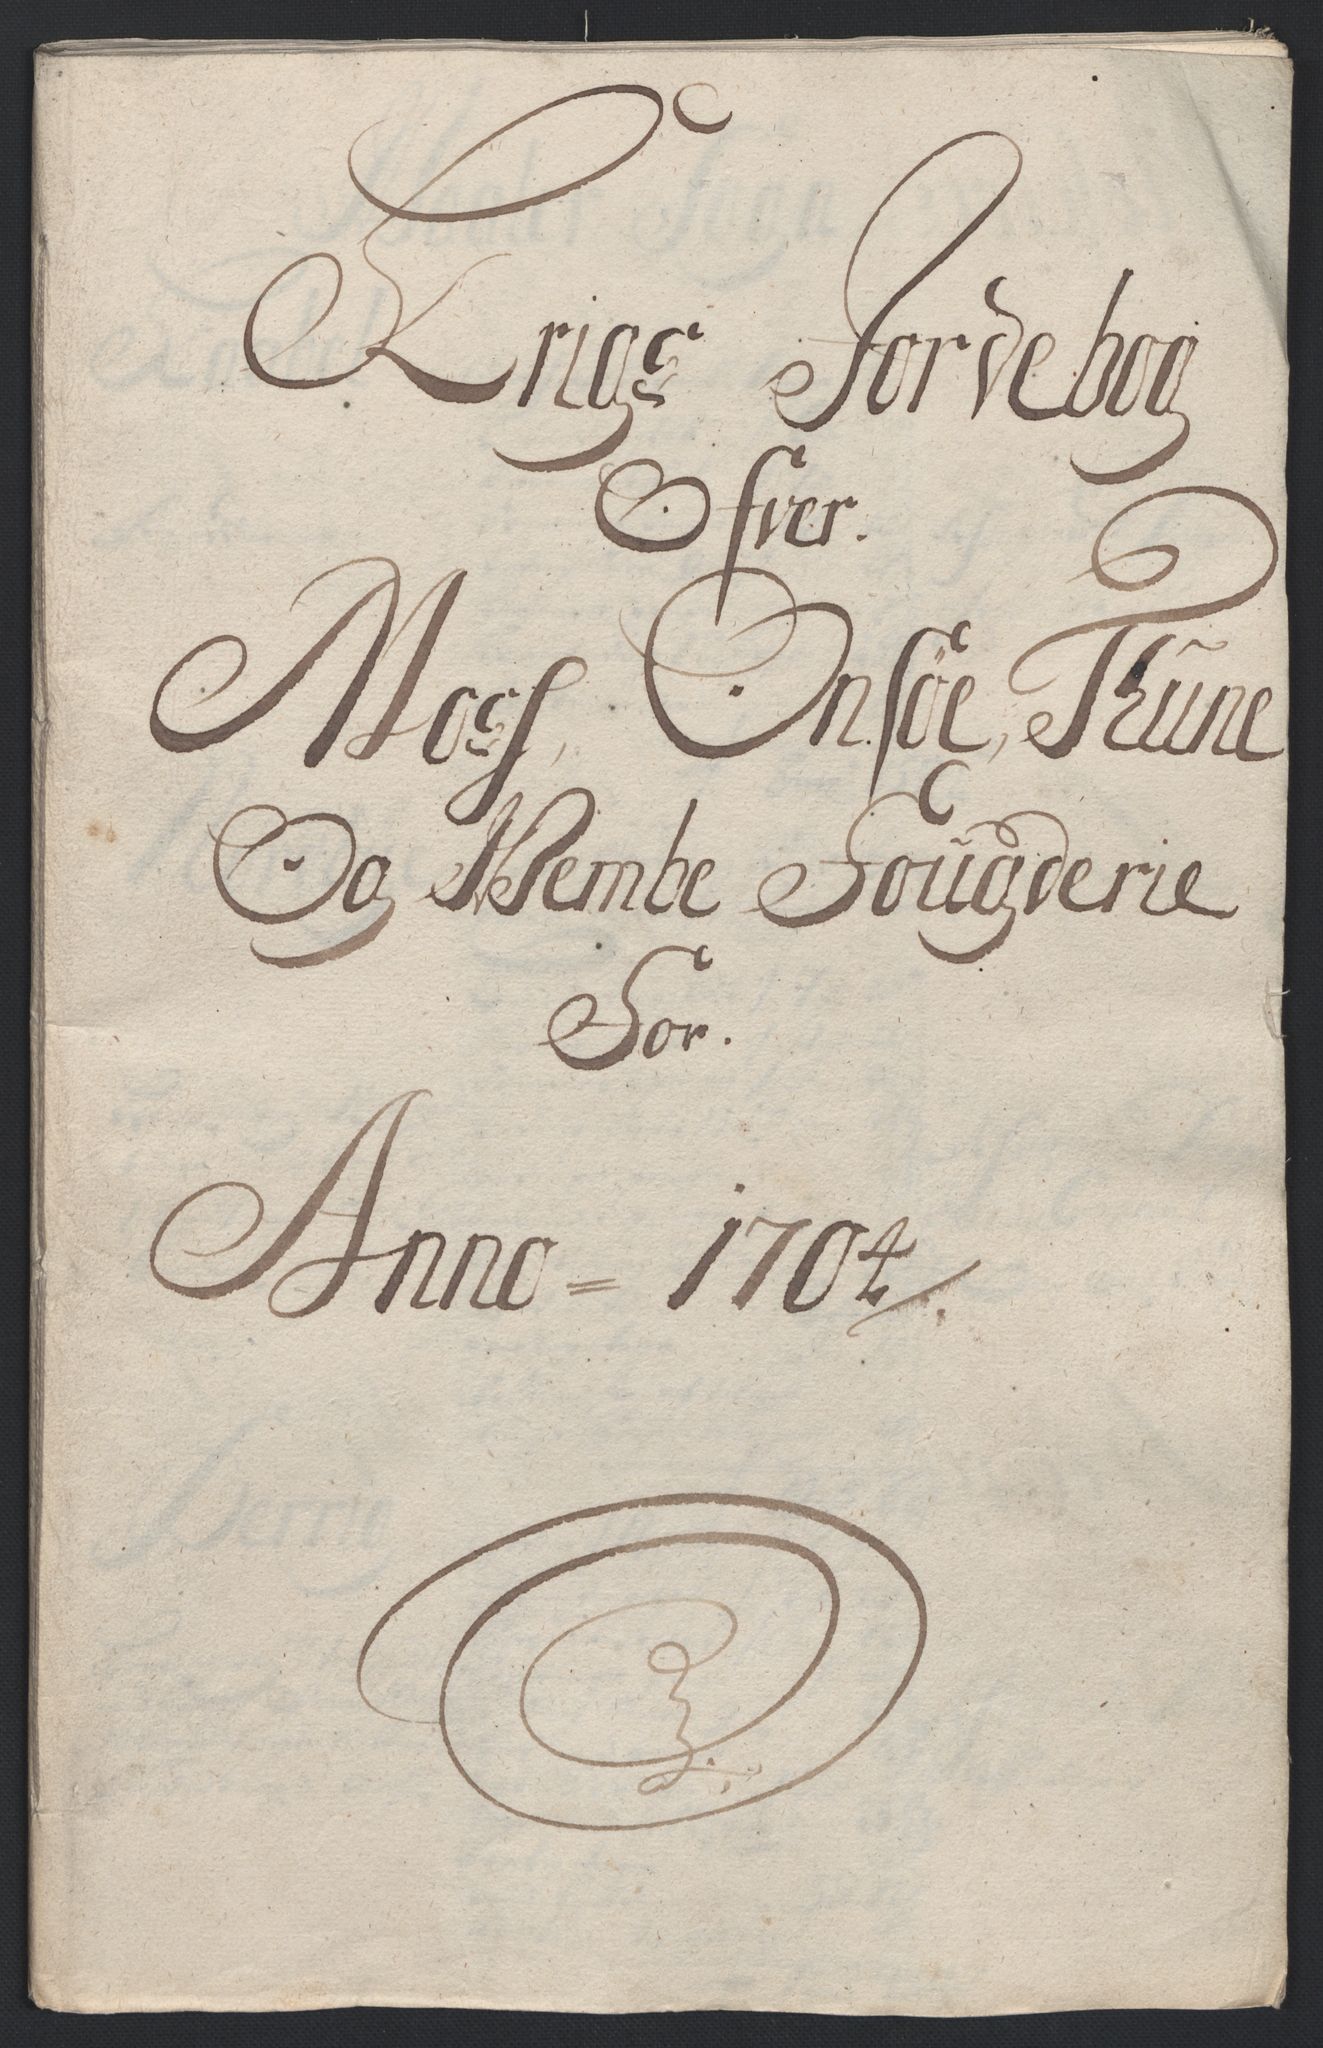 Krigs Jordebog
Ofver.
Moss, Onsöe, Thüne
Og Wembe Fougderie
For.
Anno = 1704